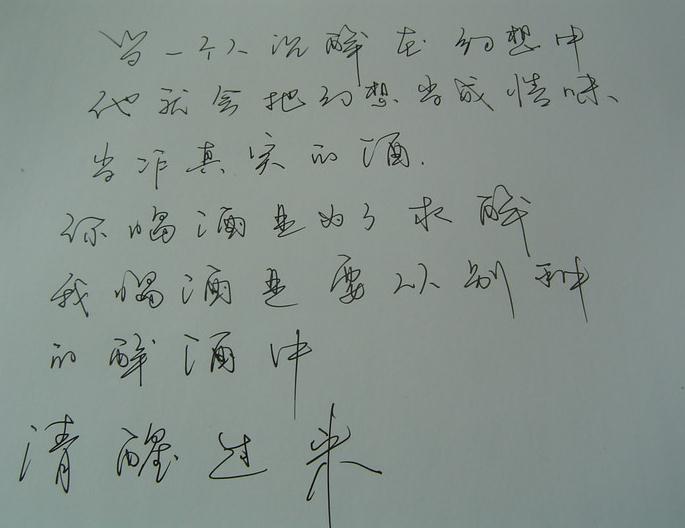 当一个人沉醉在幻想中
他就会把幻想当成情味、
当作真实的酒.
你喝酒是为了求醉
我喝酒是要从别种
的醉酒中
清醒过来